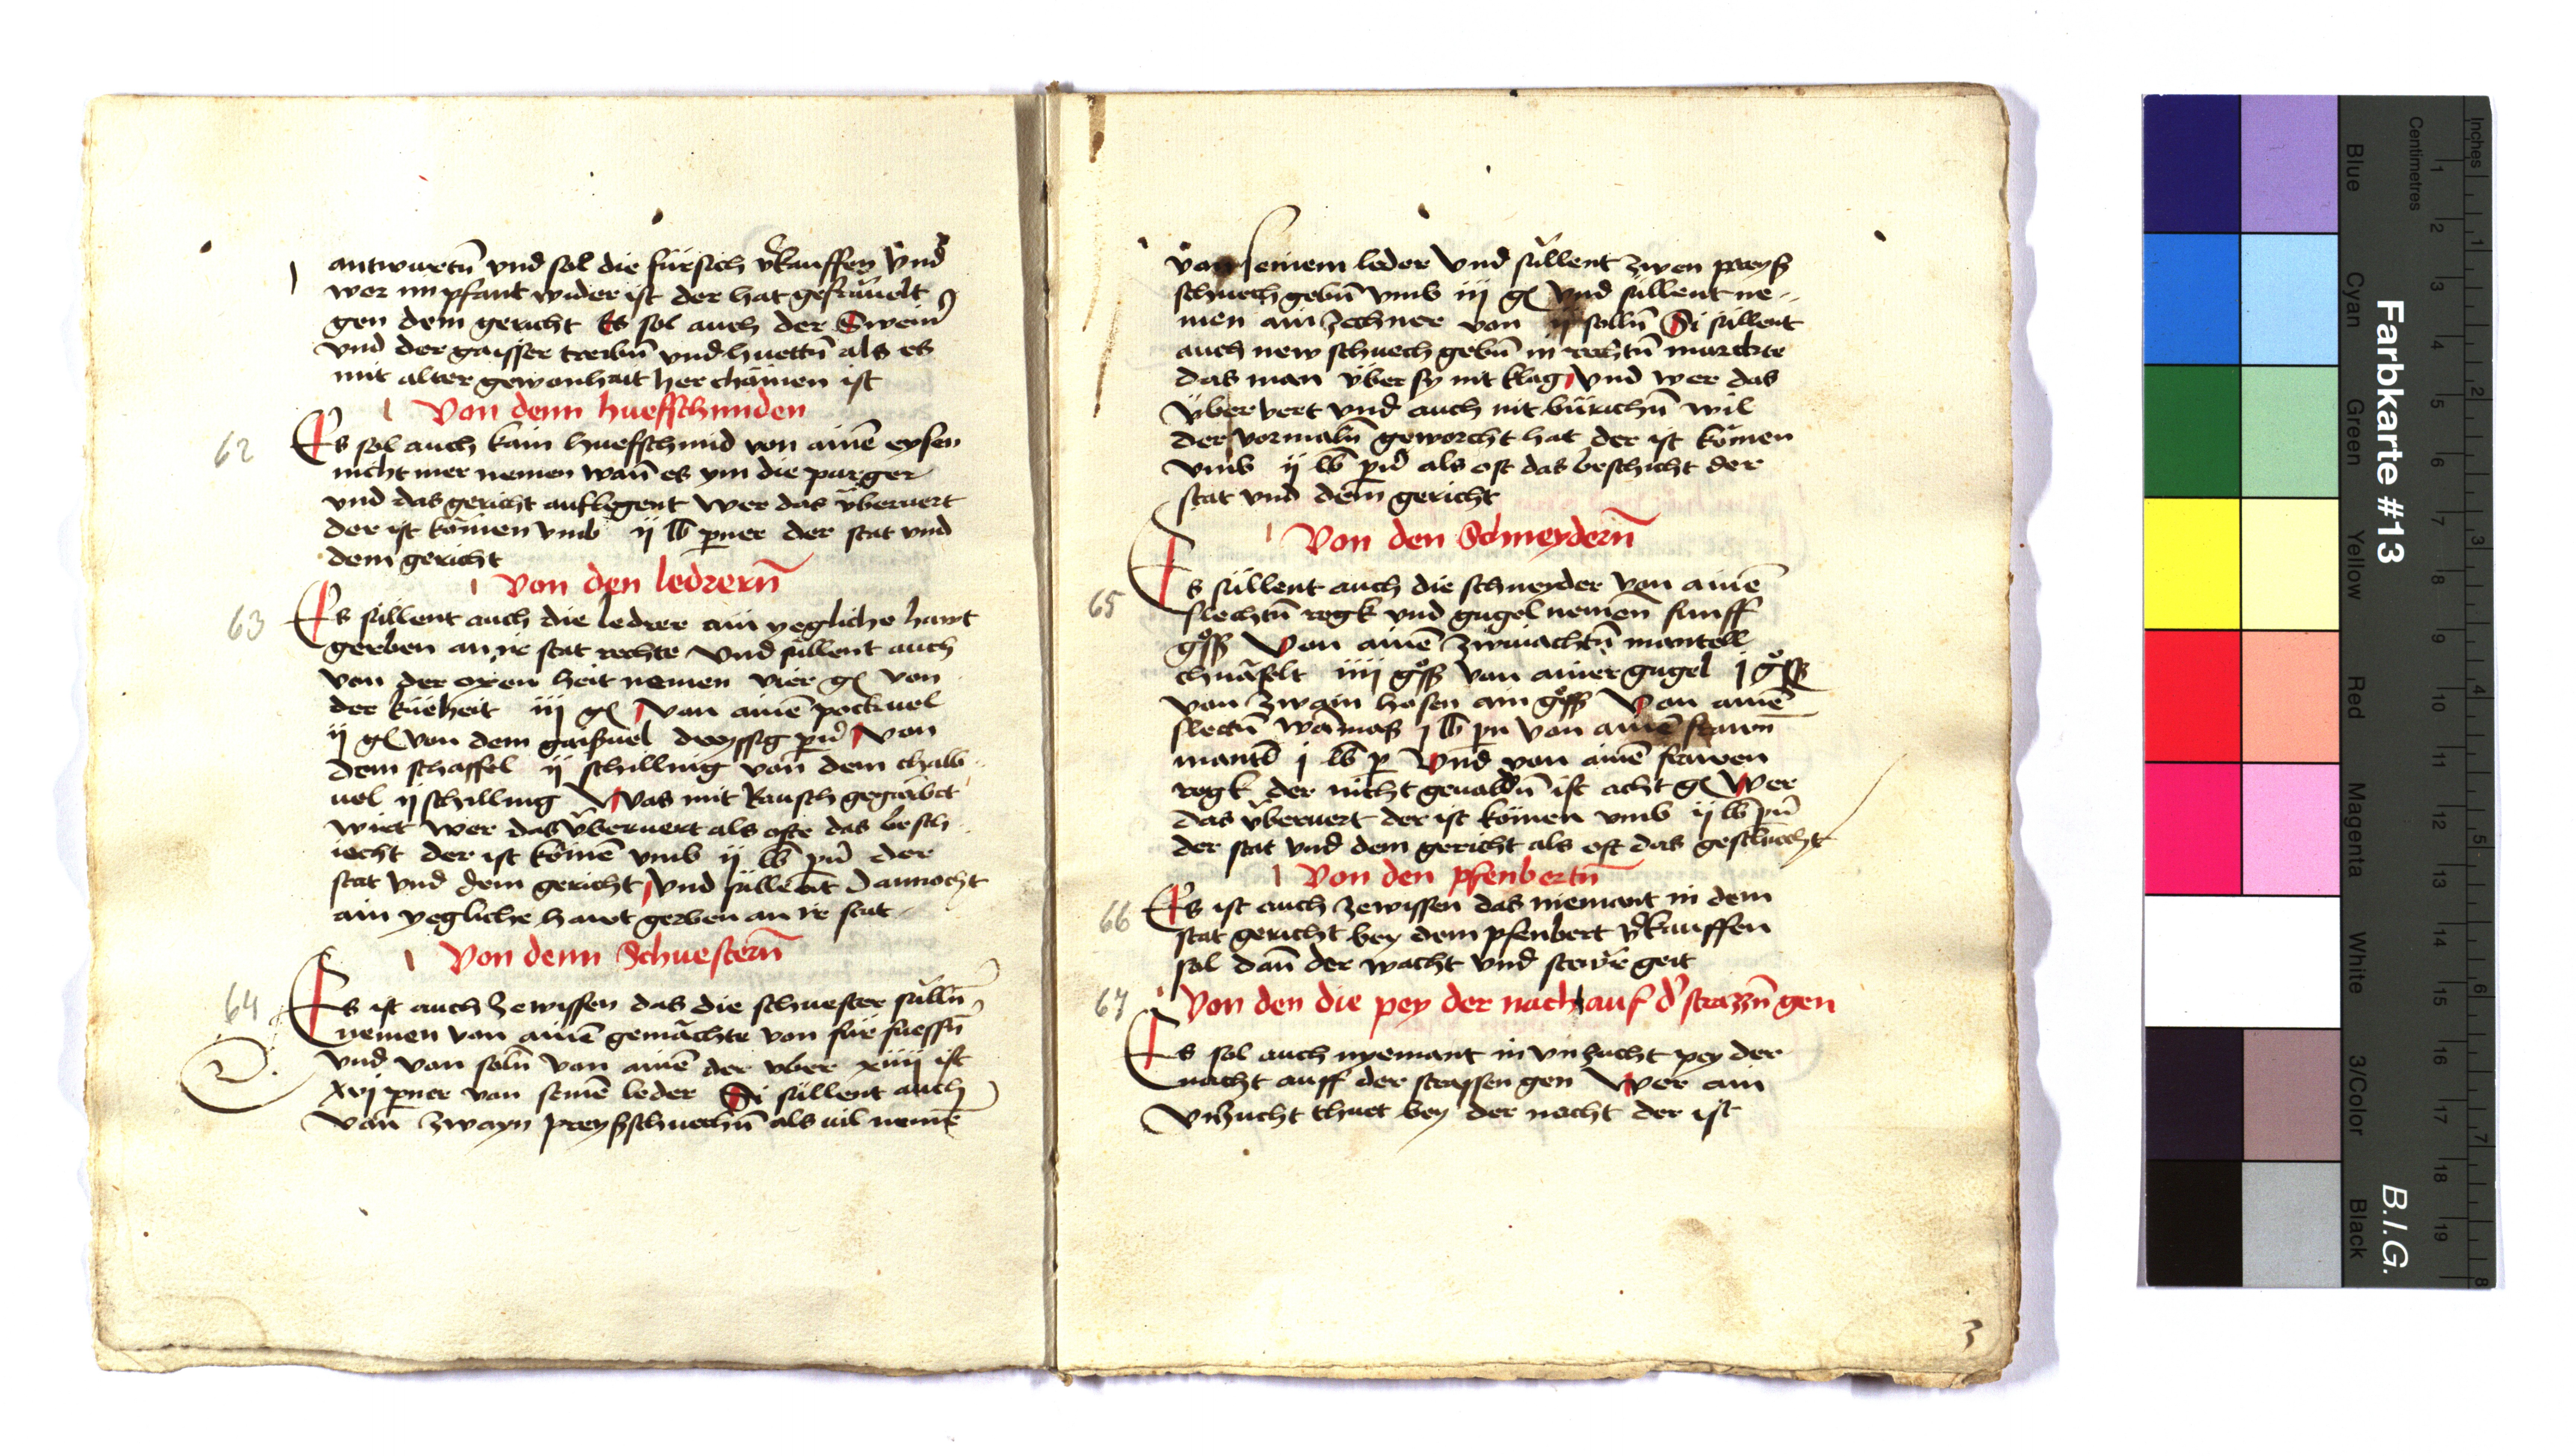 antwurtn̄ vnd sol die fürsich v̓kauffen vnd
wer im pfant wider ist der hat gefräuelt
gen dem gericht Es sol auch der Swein̄
vnd der gaisser treibn̄ vnd huettn̄ als es
mit alter gewonhait her chömen ist
Von denn huefschmiden
62 Es sol auch kain huefschmid von ainē eysen
nicht mer nemen wan̄ es ym die purger
vnd das gericht auflegent wer das überuert
der ist kömen vmb ij lb perner der stat vnd
dem gericht
Von den ledrern̄
63 Es süllent auch die ledrer ain yegliche hawt
gerben an ir stat rechte vnd süllent auch
von der oxen heit nemen vier gl von
der küeheit iij gl von ainē pockuel
ij gl von dem gaisuel dreyssig pn̄ von
dem schaffel ij schilling von dem chalb
uel ij schilling Was mit Rausch gegärbet
wirt wer das überuert als offte das besch
iecht der ist kömē vmb ij lb pn̄ der
stat vnd dem gericht vnd süllent Dannocht
ain yegliche hawt gerben an ir stat
Von denn Schuestern̄
64 Es ist auch zewissen das die schuester sülln̄
nemen von ainē gemächte von für fuessn̄
vnd von soln̄ von ainē der vber xiiij ist
xvj perner von seinē leder Si süllent auch
von zwayn preysschuechn̄ als uil nemē
von seinem leder vnd süllent zwen preyß
schuech gebn̄ vmb iij gl vnd süllent ne
men ain zechner von ij solln̄ Si süllent
auch new schuech gebn̄ in rechtn̄ marckte
das man über sy nit klag vnd wer das
über vert vnd auch nit bürichn̄ wil
der vormaln̄ geworcht hat der ist kömen
vmb ij lb pn̄ als oft das beschicht der
stat vnd dem gericht
Von den Schneydern̄
65 Es süllent auch die schneyder von ainē
slechtn̄ rogk vnd gugel nemen funff
gross Von ainē zwiuachtn̄ mantell
chnäfelt iiij gross von ainer gugel j gross
von zwain hosen ain gross Von ainē
slectn̄ wamas j lb pn von ainē frawn
mantl j lb p Vnd von ainē frawen
rogk der nicht geualdn̄ ist acht gl Wer
das überuert der ist kömen vmb ij lb pn̄
der stat vnd dem gericht als oft das geschiecht
Von den pfenbertn̄
66 Es ist auch zewissen das niemant in dem
stat gericht bey dem pfenbert v̓kauffen
sol dan̄ der wacht vnd stewr geit
67 Von den die pey der nacht auf d̓ strazzn̄ gen
Es sol auch nyemant in vnzucht pey der
nacht auff der strassen gen Wer ain
vnzucht thuet bey der nacht der ist
3
Farbkarte #13
B.I.G.
Inches
Centimetres
Blue
Cyan
Green
Yellow
Red
Magenta
White
3/Color
Black
1
2
3
4
5
6
7
8
9
10
11
12
13
14
15
16
17
18
19
1
2
3
4
5
6
7
8